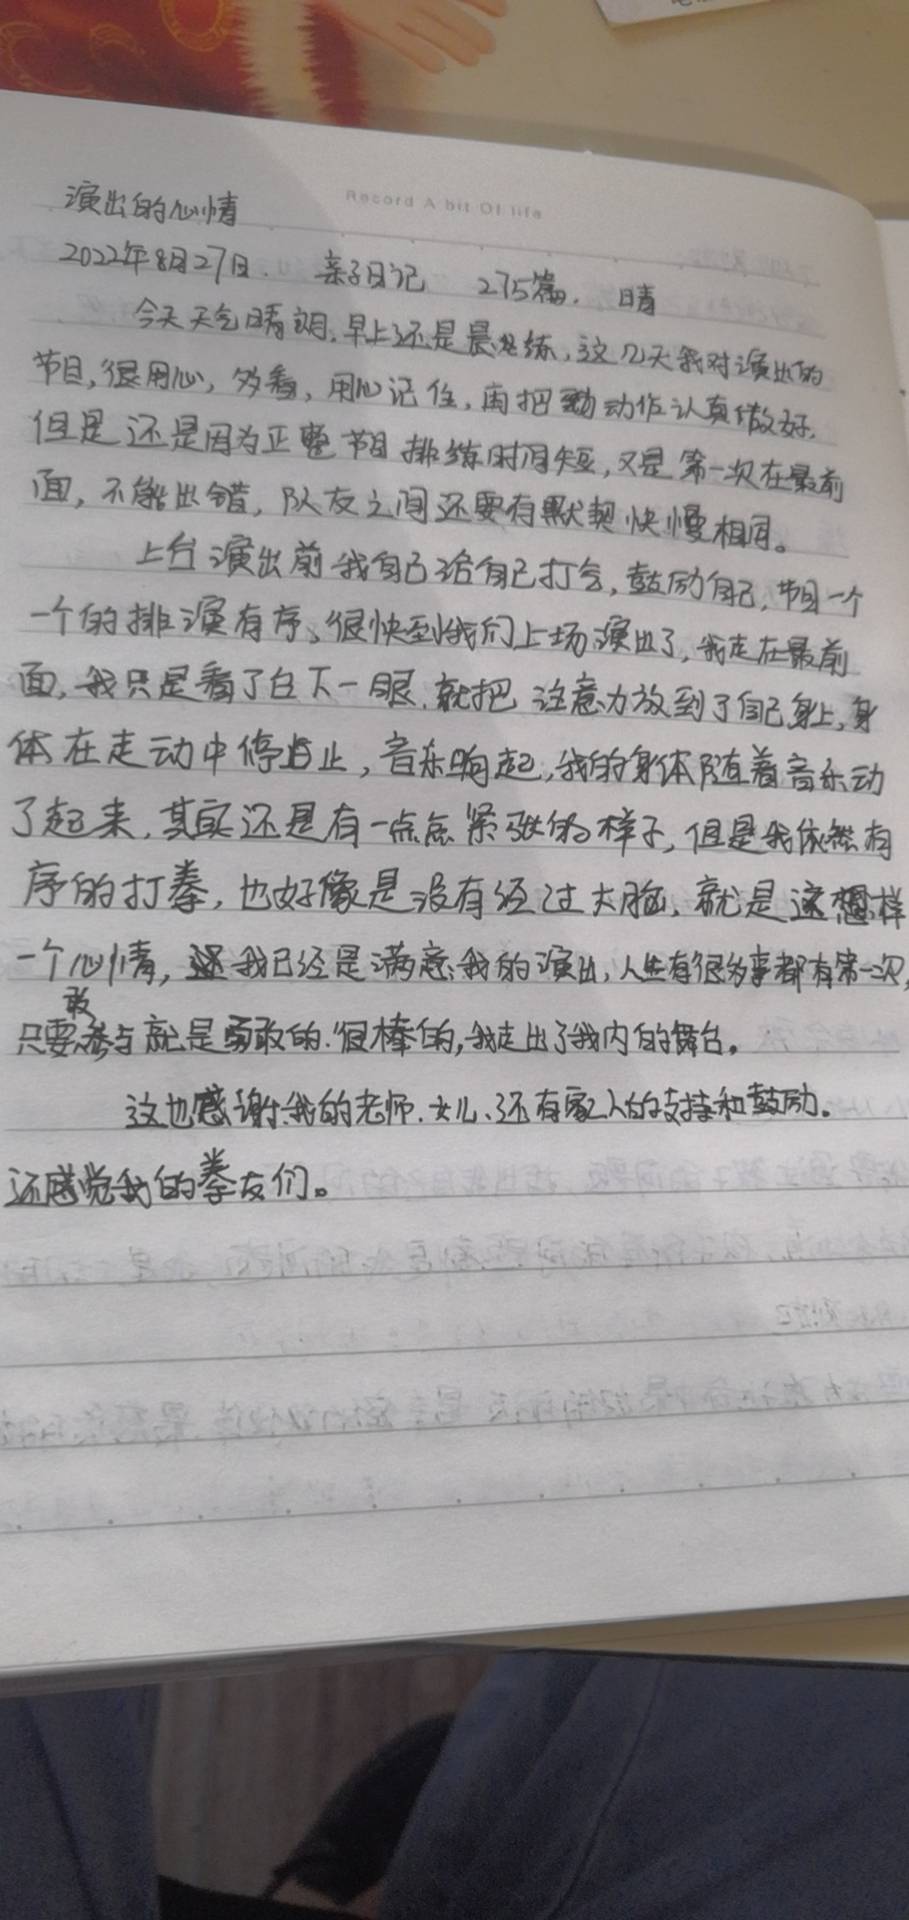 Record A bit Of life
演出的心情
2022年8月27日. 亲子日记 275篇. 晴
今天天气晴朗,早上还是晨练,这几天我对演出的
节目,很用心,多看,用心记住,再把动作认真做好,
但是还是因为正整节目排练时间短,又是第一次在最前
面,不能出错,队友之间还要有默契快慢相同。
上台演出前我自己给自己打气,鼓励自己,节目一个
一个的排演有序,很快到我们上场演出了,我走在最前
面,我只是看了台下一眼,就把注意力放到了自己身上,身
体在走动中停止,音乐响起,我的身体随着音乐动
了起来,其实还是有一点点紧张的样子,但是我依然有
序的打拳,也好像是没有经过大脑,就是这想样
一个心情,我已经是满意我的演出,人生有很多事都有第一次,
只要敢参与就是勇敢的.很棒的,我走出了我内的舞台。
这也感谢我的老师.女儿、还有家人的支持和鼓励。
还感觉我的拳友们。